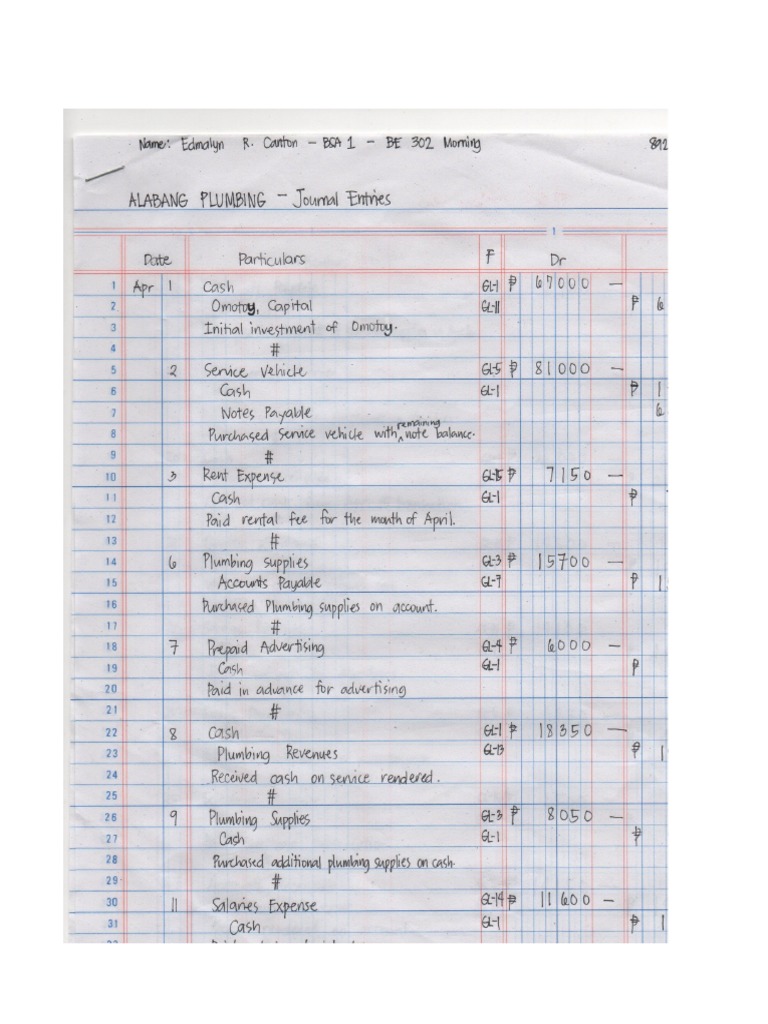 Name: Edmalyn R. Canton - BSA 1 - BE 302 Morning 892
ALABANG PLUMBING - Journal Entries
1
Date Particulars F Dr
1 Apr 1 Cash GL-1 ₱ 67000 —
2 Omotoy, Capital GL-11 ₱ 6
3 Initial investment of Omotoy.
4 #
5 2 Service Vehicle GL-5 ₱ 81000 —
6 Cash GL-1 ₱ 1
7 Notes Payable 6
8 Purchased Service vehicle with remaining note balance.
9 #
10 3 Rent Expense GL-15 ₱ 7150 —
11 Cash GL-1 ₱
12 Paid rental fee for the month of April.
13 #
14 6 Plumbing supplies GL-3 ₱ 15700 —
15 Accounts Payable GL-7 ₱ 1
16 Purchased Plumbing supplies on account.
17 #
18 7 Prepaid Advertising GL-4 ₱ 6000 —
19 Cash GL-1 ₱
20 Paid in advance for advertising
21 #
22 8 Cash GL-1 ₱ 18350 —
23 Plumbing Revenues GL-13 ₱ 1
24 Received cash on service rendered.
25 #
26 9 Plumbing Supplies GL-3 ₱ 8050 —
27 Cash GL-1 ₱
28 Purchased additional plumbing supplies on cash.
29 #
30 11 Salaries Expense GL-14 ₱ 11600 —
31 Cash GL-1 ₱ 1